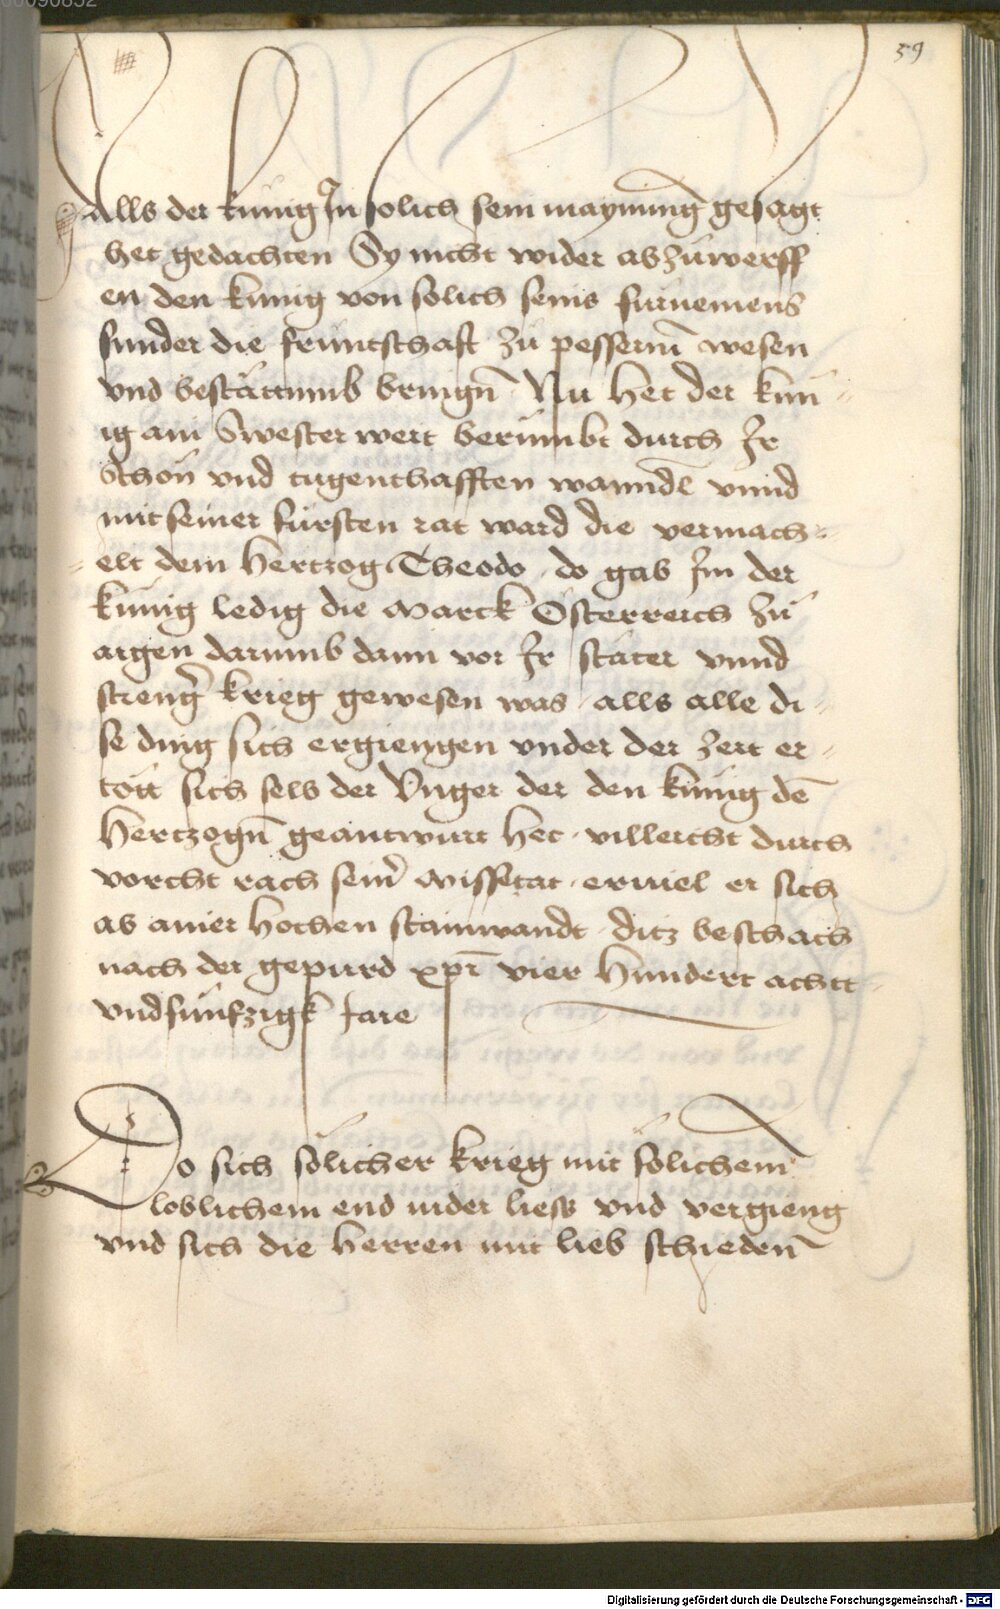 59
Alls der kunig In solich sein maynung̃ gesagt
het gedachten Sy nicht wider abzůwerff
en den kunig von solich seins furnemens
sunder die fruntschaft zů pesserm̃ wesen
vnd bestättnus bringñ Nu Het der kün
ig ain Swester wert berümbt durch Ir
schön vnd tugenthafften wanndl vnnd
mit seiner fürsten rat ward die vermach-
elt dem Hertzog Theodo · do gab Im der
künig ledig die Marck Österreich zů
aigen darumb dann vor Ir stäter vnnd
streng̃ krieg gewesen was · alls alle di-
se ding sich ergiengen vnder der zeit er-
tött sich selb der Vnger der den künig dẽ
Hertzogñ geantwurt het · villeicht durch
vorcht rach seiñ missetat · erviel er sich
ab ainer hochen stainwandt · ditz beschach
nach der gepurd xp̃i vier Hundert achtt-
vndfünfzigk Jare
Do sich sölicher krieg mit sölichem
loblichem end nider liess vnd vergieng
vnd sich die Herren mit lieb schiedeñ
Digitalisierung gefördert durch die Deutsche Forschungsgemeinschaft - DFG